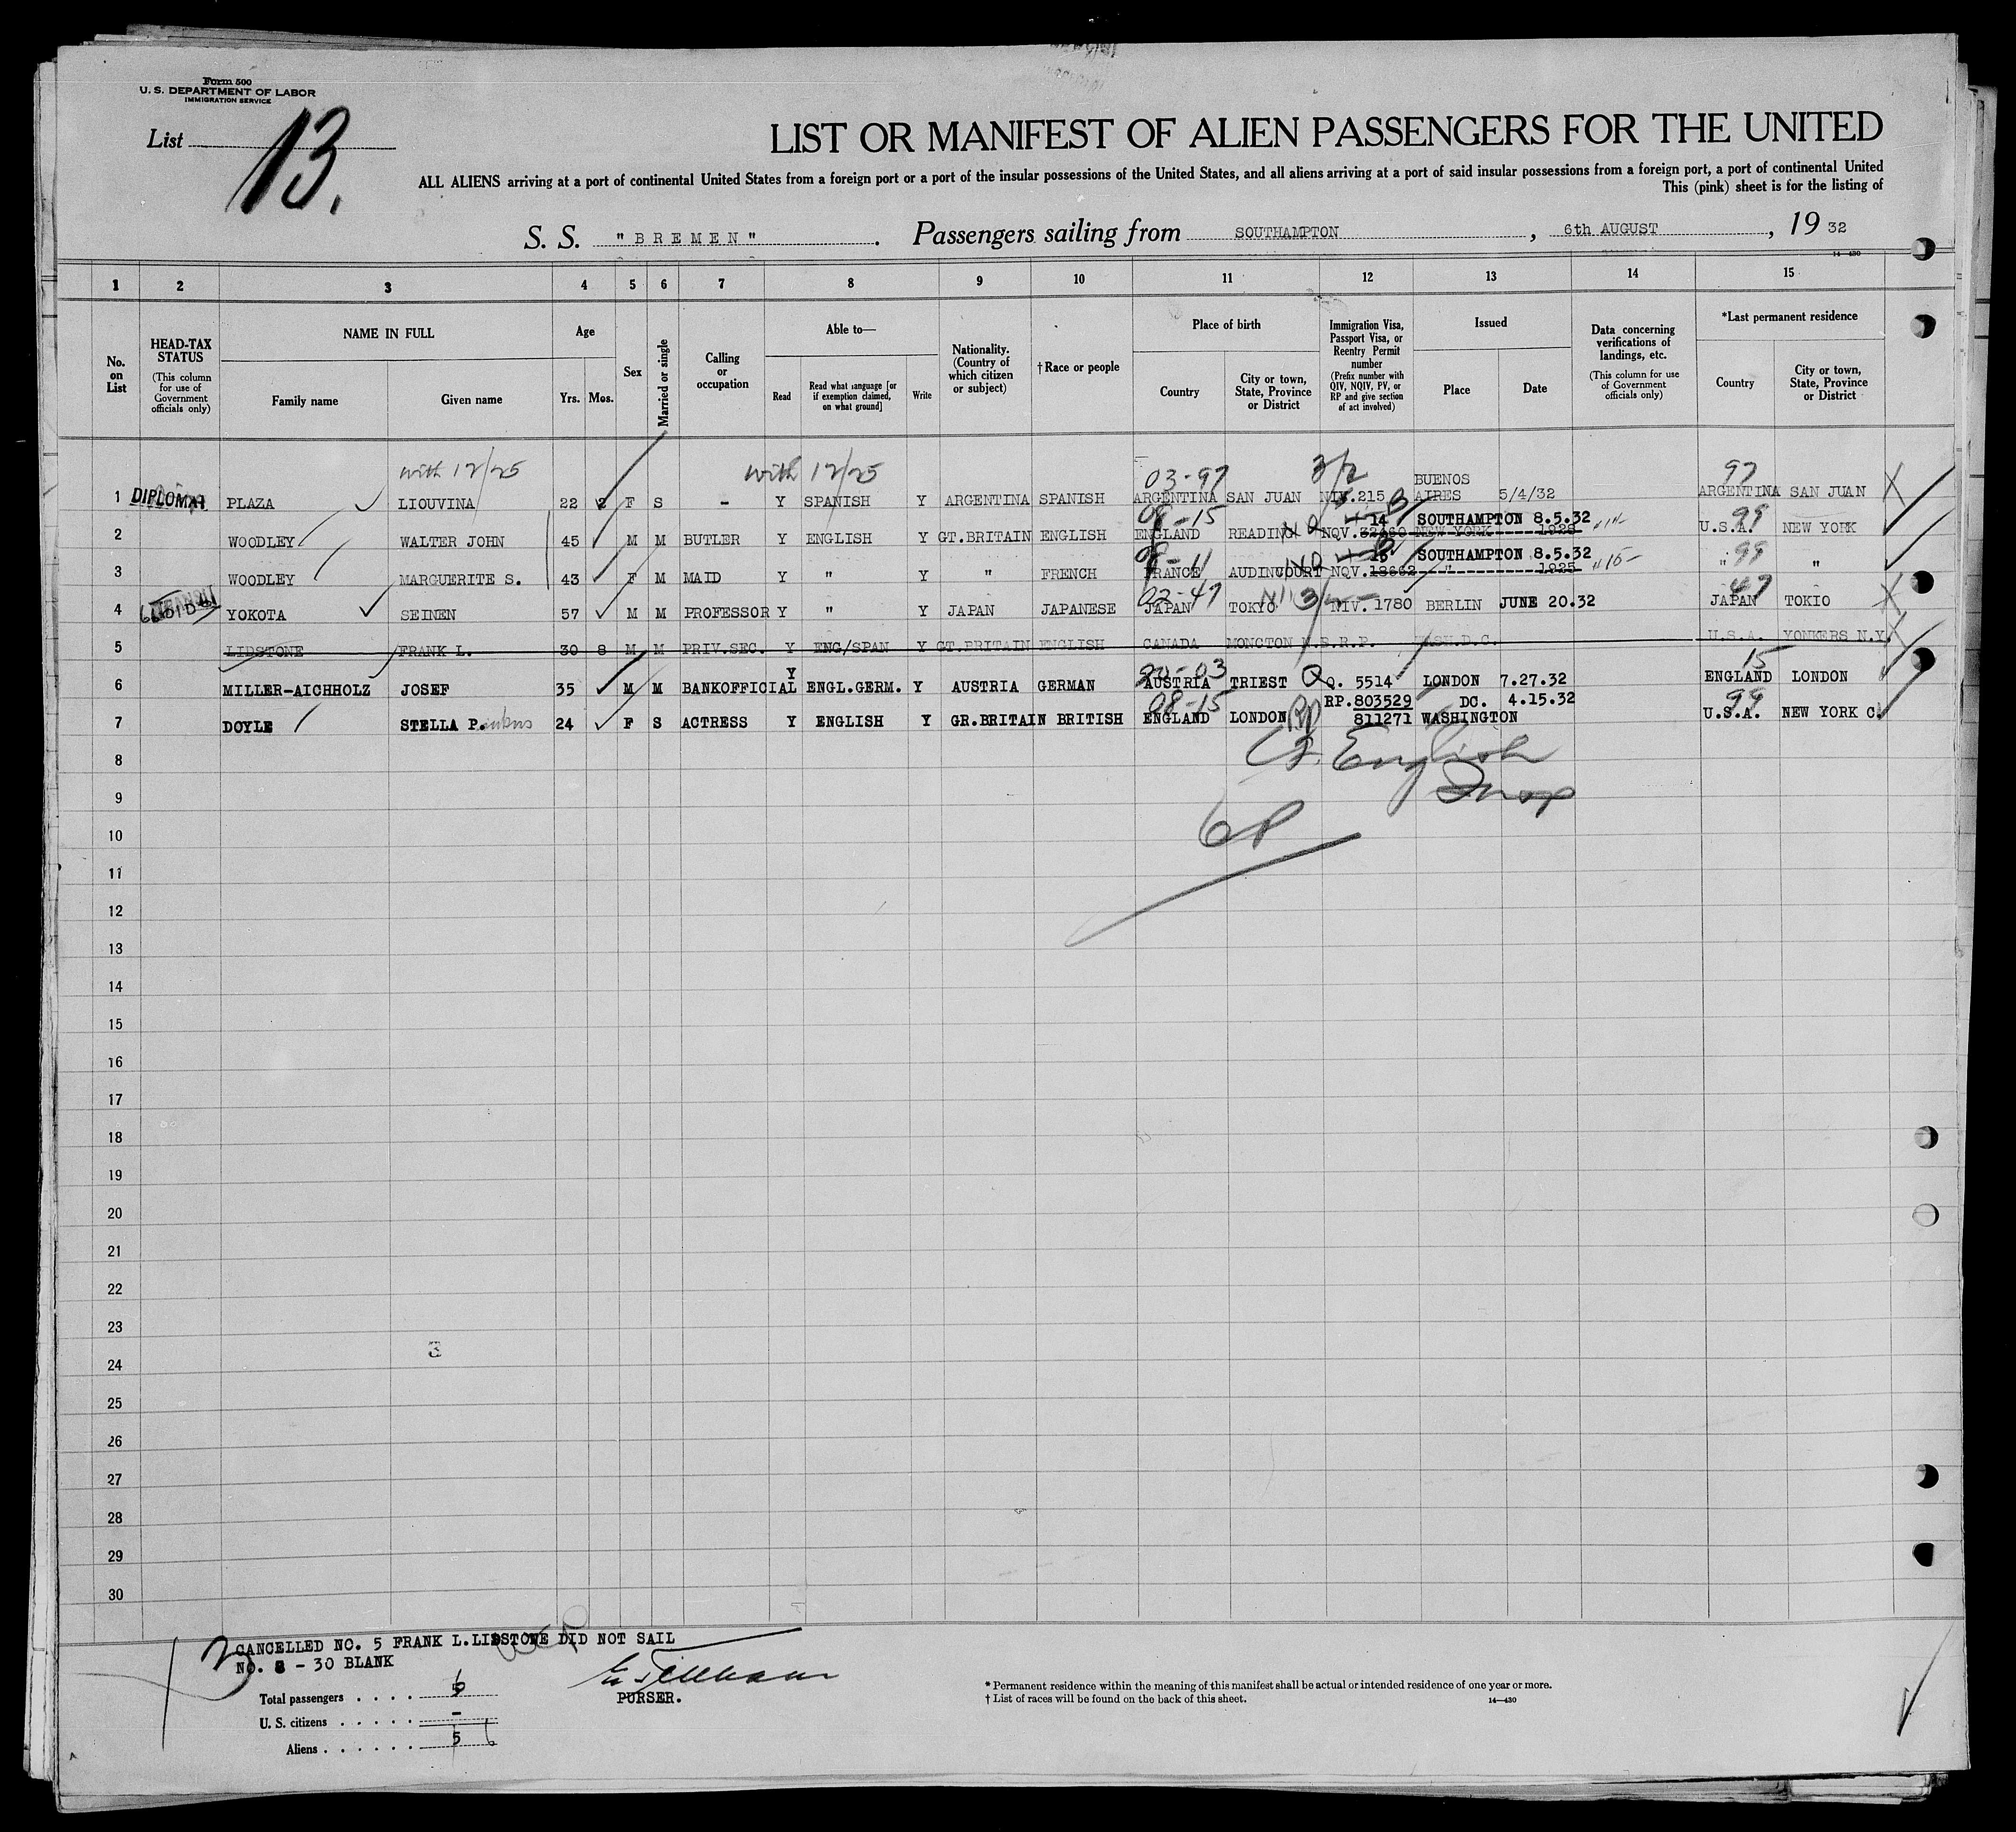 Form 500
U. S. DEPARTMENT OF LABOR
IMMIGRATION SERVICE
List 13.
LIST OR MANIFEST OF ALIEN PASSENGERS FOR THE UNITED
ALL ALIENS arriving at a port of continental United States from a foreign port or a port of the insular possessions of the United States, and all aliens arriving at a port of said insular possessions from a foreign port, a port of continental United
This (pink) sheet is for the listing of
S. S. "BREMEN" . Passengers sailing from SOUTHAMPTON , 6th AUGUST , 19 32
14-430
1 2 3 4 5 6 7 8 9 10 11 12 13 14 15
No. on List
HEAD-TAX STATUS (This column for use of Government officials only)
NAME IN FULL
Family name
Given name
Age
Yrs. Mos.
Sex
Married or single
Calling or occupation
Able to—
Read
Read what language [or if exemption claimed, on what ground]
Write
Nationality. (Country of which citizen or subject)
†Race or people
Place of birth
Country
City or town, State, Province or District
Immigration Visa, Passport Visa, or Reentry Permit number (Prefix number with QIV, NQIV, PV, or RP and give section of act involved)
Issued
Place
Date
Data concerning verifications of landings, etc. (This column for use of Government officials only)
*Last permanent residence
Country
City or town, State, Province or District
with 12/25 with 12/25 03-97 3/2 BUENOS 97
1 DIPLOMAT PLAZA LIOUVINA 22 2 F S - Y SPANISH Y ARGENTINA SPANISH ARGENTINA SAN JUAN NIV.215 AIRES 5/4/32 ARGENTINA SAN JUAN
08-15 14 SOUTHAMPTON 8.5.32 99
2 WOODLEY WALTER JOHN 45 M M BUTLER Y ENGLISH Y GT.BRITAIN ENGLISH ENGLAND READING NQV.32460 NEW YORK 1928 U.S.A. NEW YORK
15 SOUTHAMPTON 8.5.32 99
3 WOODLEY MARGUERITE S. 43 F M MAID Y " Y " FRENCH FRANCE AUDINCOURT NQV.18662 " 1925 " "
02-47 47
4 YOKOTA SEINEN 57 M M PROFESSOR Y " Y JAPAN JAPANESE JAPAN TOKYO NIV. 1780 BERLIN JUNE 20.32 JAPAN TOKIO
5 LIDSTONE FRANK L. 30 8 M M PRIV.SEC. Y ENG/SPAN Y GT.BRITAIN ENGLISH CANADA MONCTON N.B.R.P. WASH.D.C. U.S.A. YONKERS N.Y.
20-03 15
6 MILLER-AICHHOLZ JOSEF 35 M M BANKOFFICIAL Y ENGL.GERM. Y AUSTRIA GERMAN AUSTRIA TRIEST Q Q. 5514 LONDON 7.27.32 ENGLAND LONDON
08-15 RP.803529 DC. 4.15.32 99
7 DOYLE STELLA P. 24 F S ACTRESS Y ENGLISH Y GR.BRITAIN BRITISH ENGLAND LONDON RP 811271 WASHINGTON U.S.A. NEW YORK C.
8 English
9 Insp
10 6P
11
12
13
14
15
16
17
18
19
20
21
22
23
24
25
26
27
28
29
30
CANCELLED NO. 5 FRANK L.LIDSTONE DID NOT SAIL
NO. 8 - 30 BLANK
Total passengers . . . . 6
U. S. citizens . . . . . -
Aliens . . . . . . 5 6
PURSER.
* Permanent residence within the meaning of this manifest shall be actual or intended residence of one year or more.
† List of races will be found on the back of this sheet.
14—430